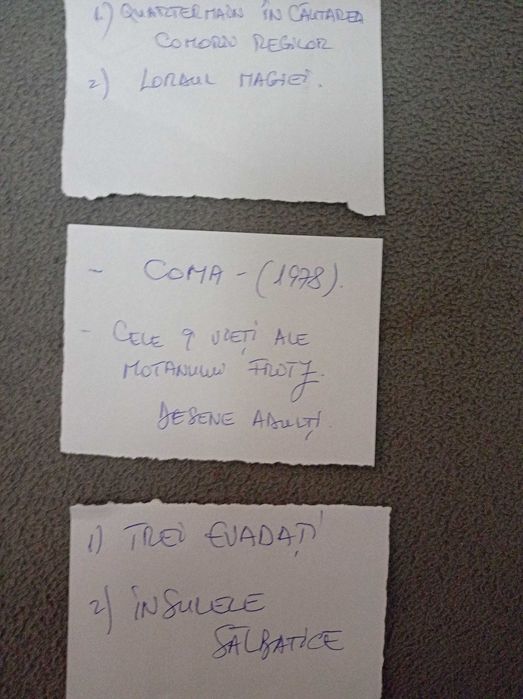 1.) QUARTERMAIN ÎN CĂUTAREA
COMORII REGILOR
2) LORDUL MAGIEI.
- COMA - (1978).
- CELE 9 VIEȚI ALE
MOTANULUI FRITZ.
DESENE ADULȚI.
1) TREI EVADAȚI
2) INSULELE
SĂLBATICE